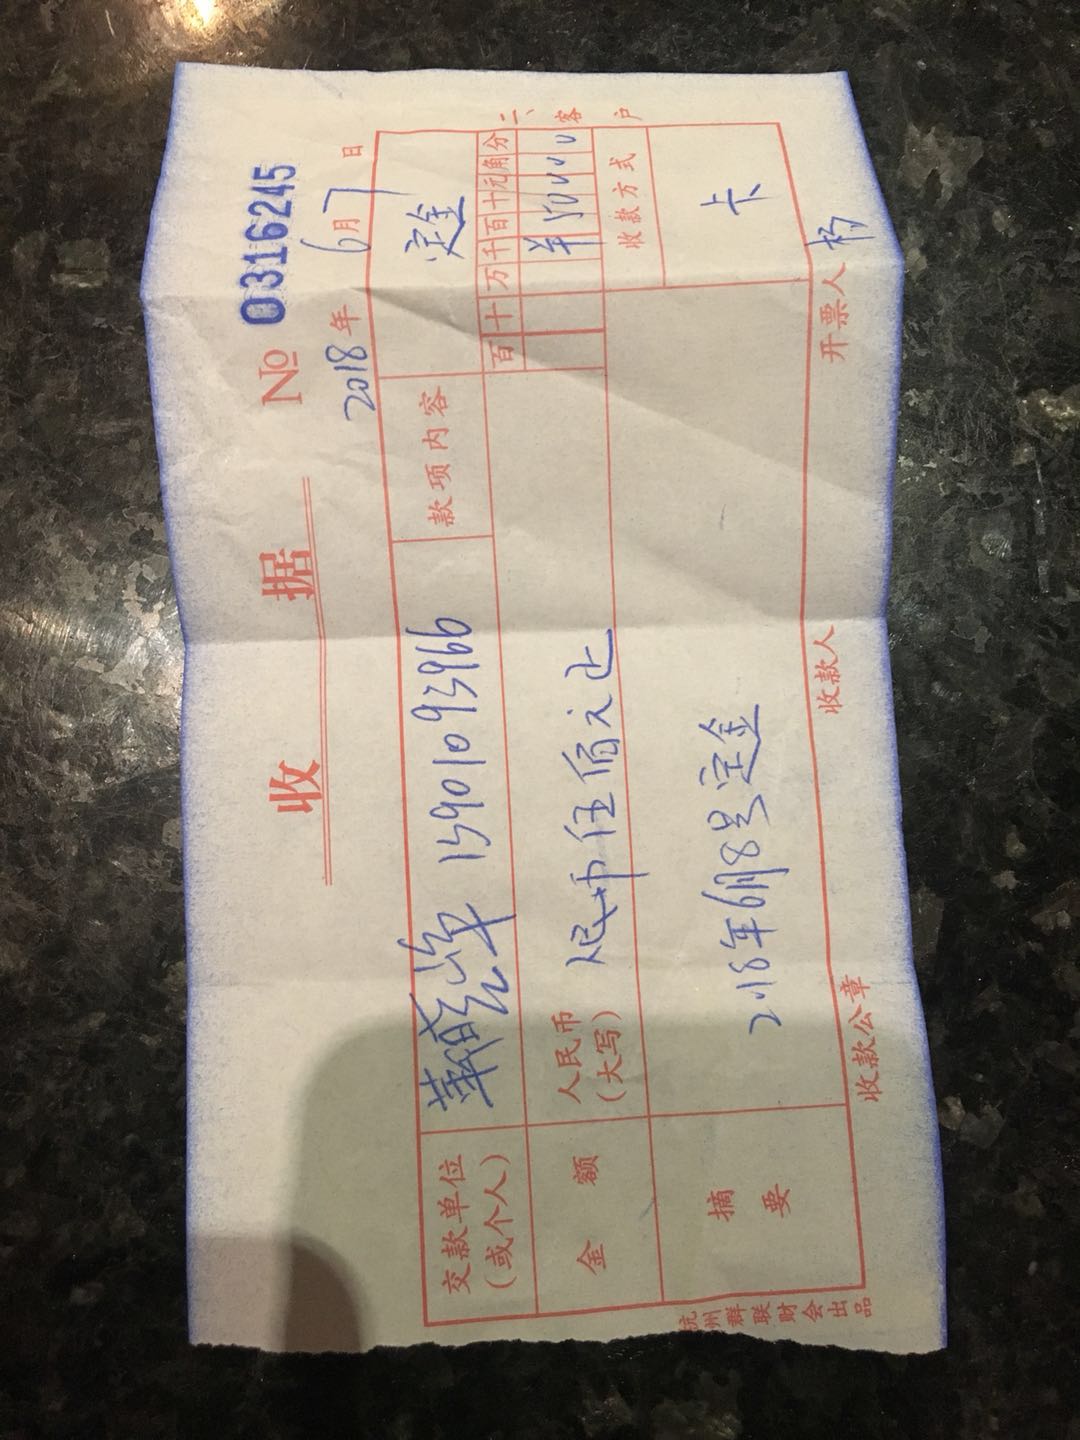 收 据
№ 0316245
2018年6月7日
交款单位
(或个人)
13901093966
款项内容
定金
金额
人民币
(大写)
人民币伍佰元止
百十万千百十元角分
¥50000
摘要
2018年6月8号定金
收款方式
卡
收款公章
收款人
开票人
二、客户
杭州群联财会出品